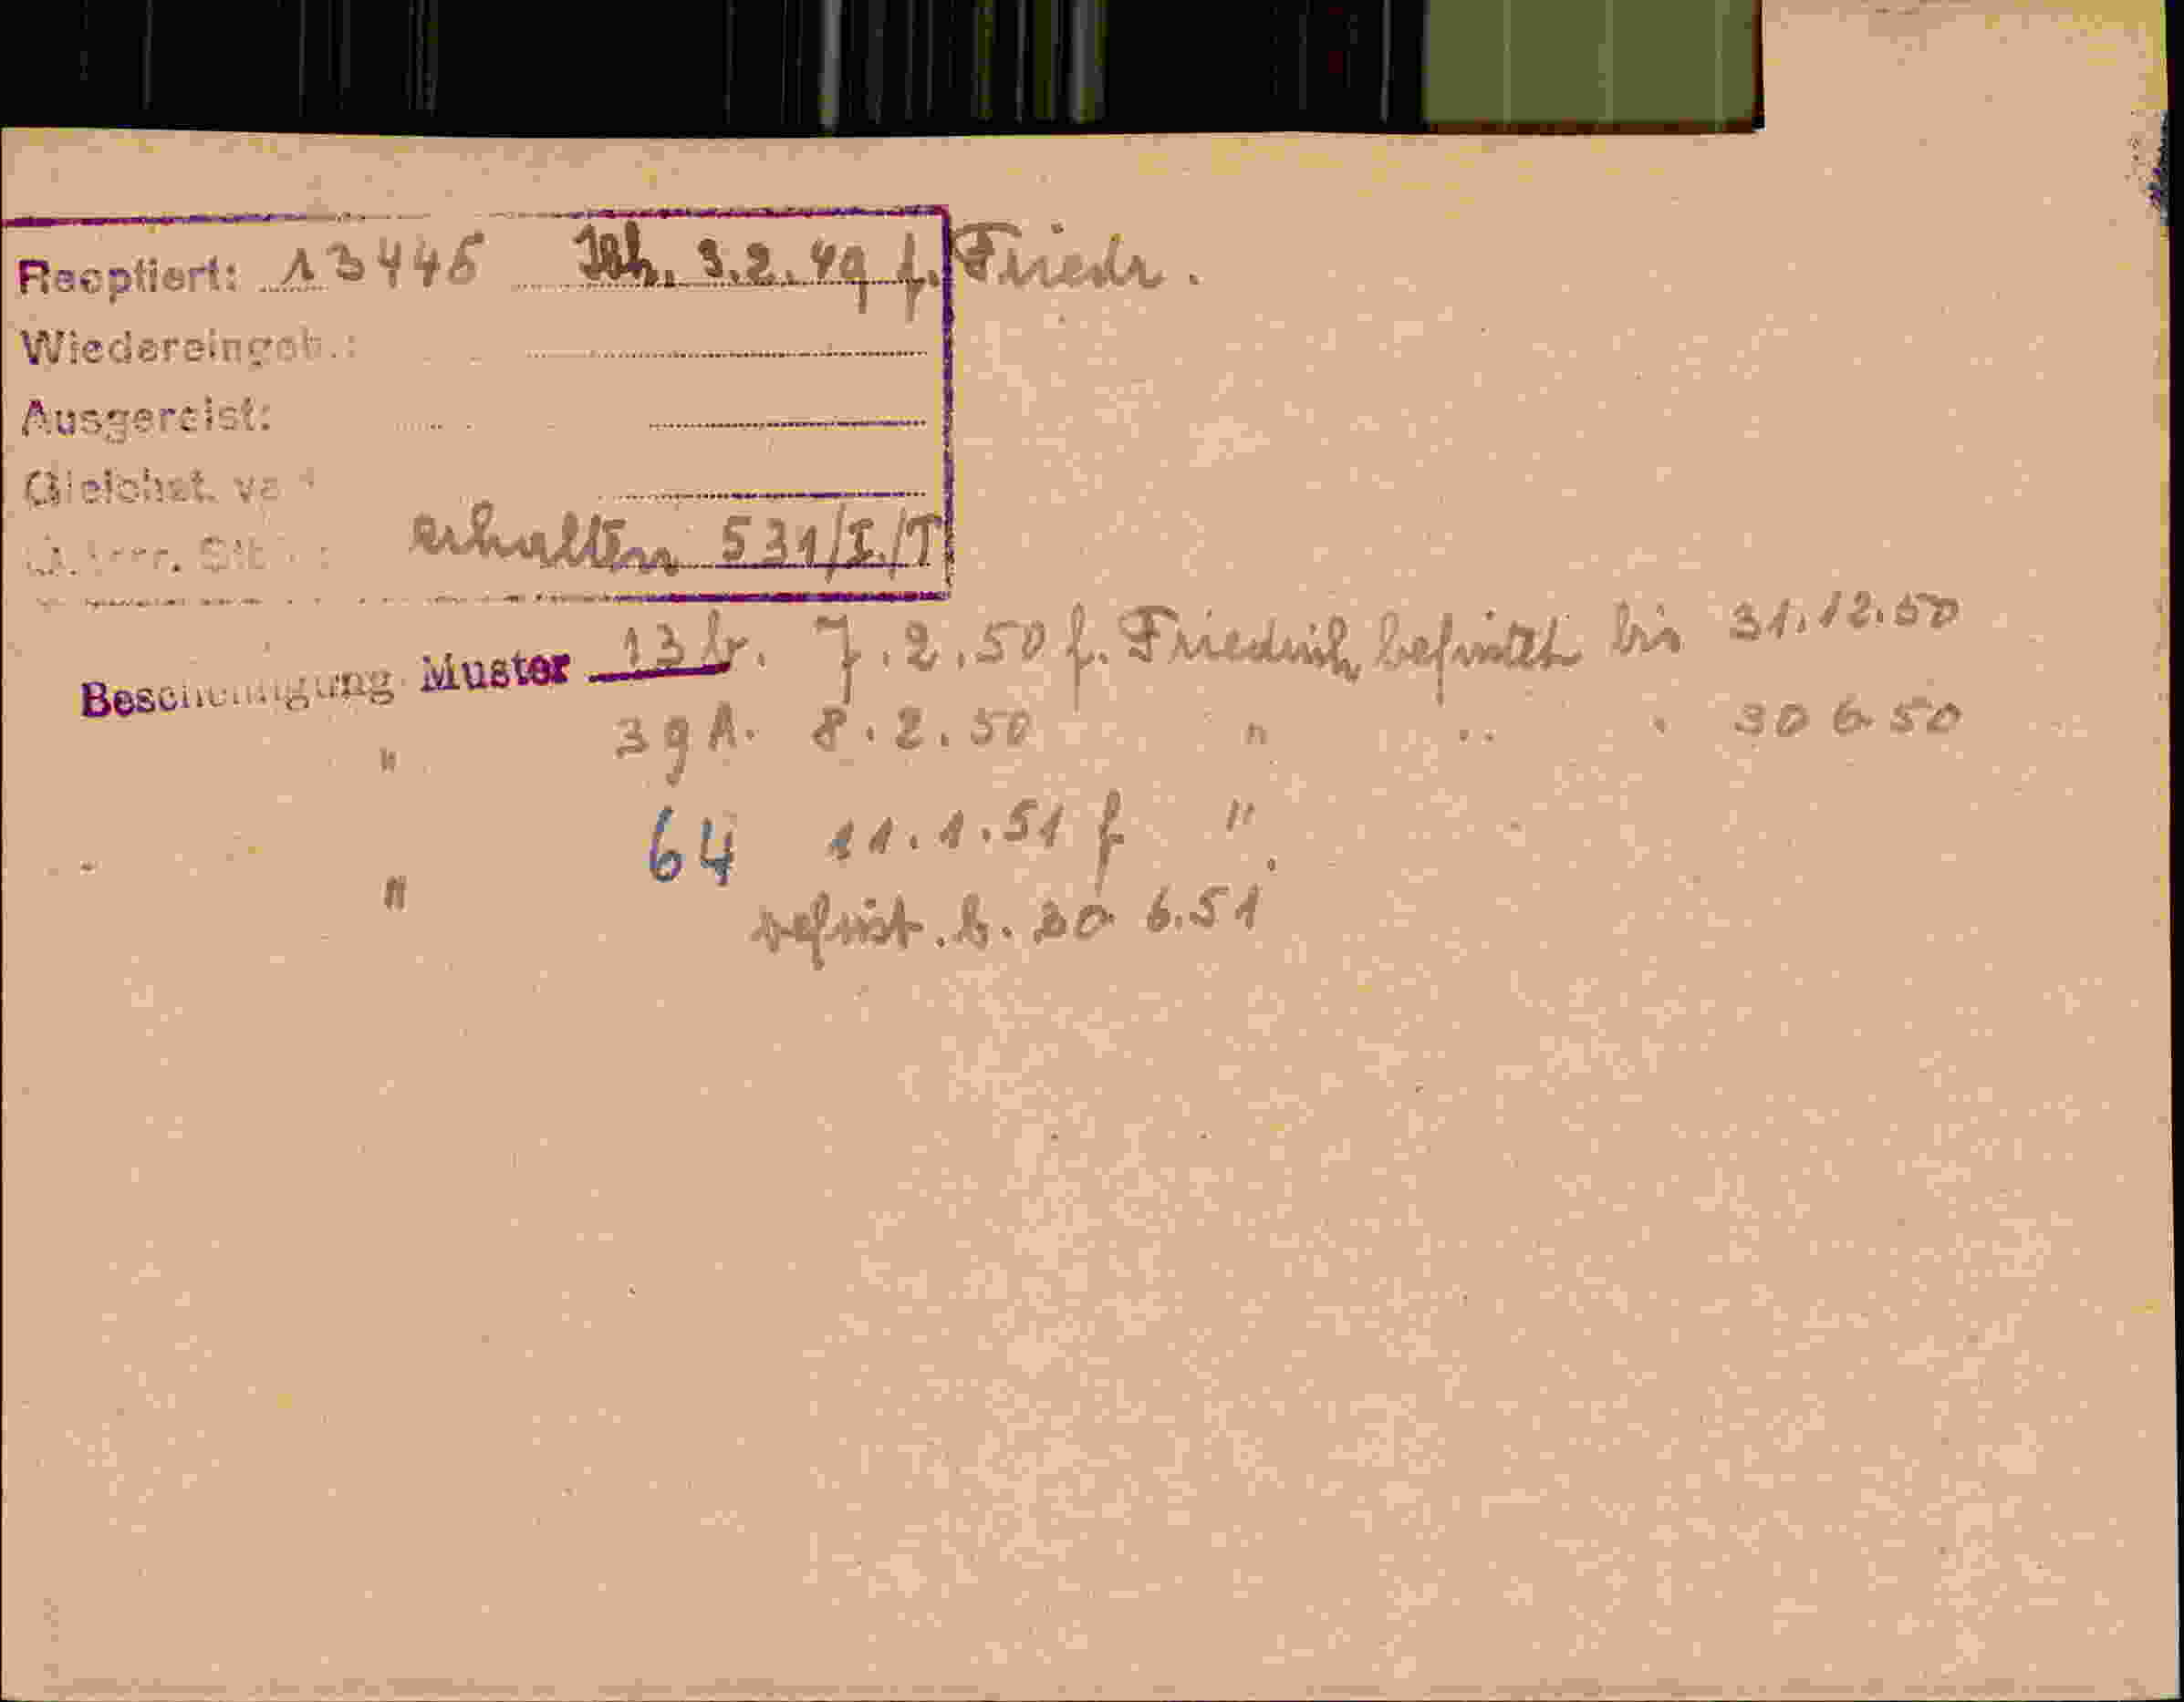 Reoptiert: 13445 3.2.49 f. Friedr.
Wiedereingeb.:
Ausgereist:
Gleichst.
erhalten 531/I./T
Bescheinigung Muster 13b. 7.2.50 f. Friedrich befristet bis 31.12.50
" 39A. 8.2.50 " " " 30 6. 50
64 11.1.51 f "
" befrist. b. 30 6.51